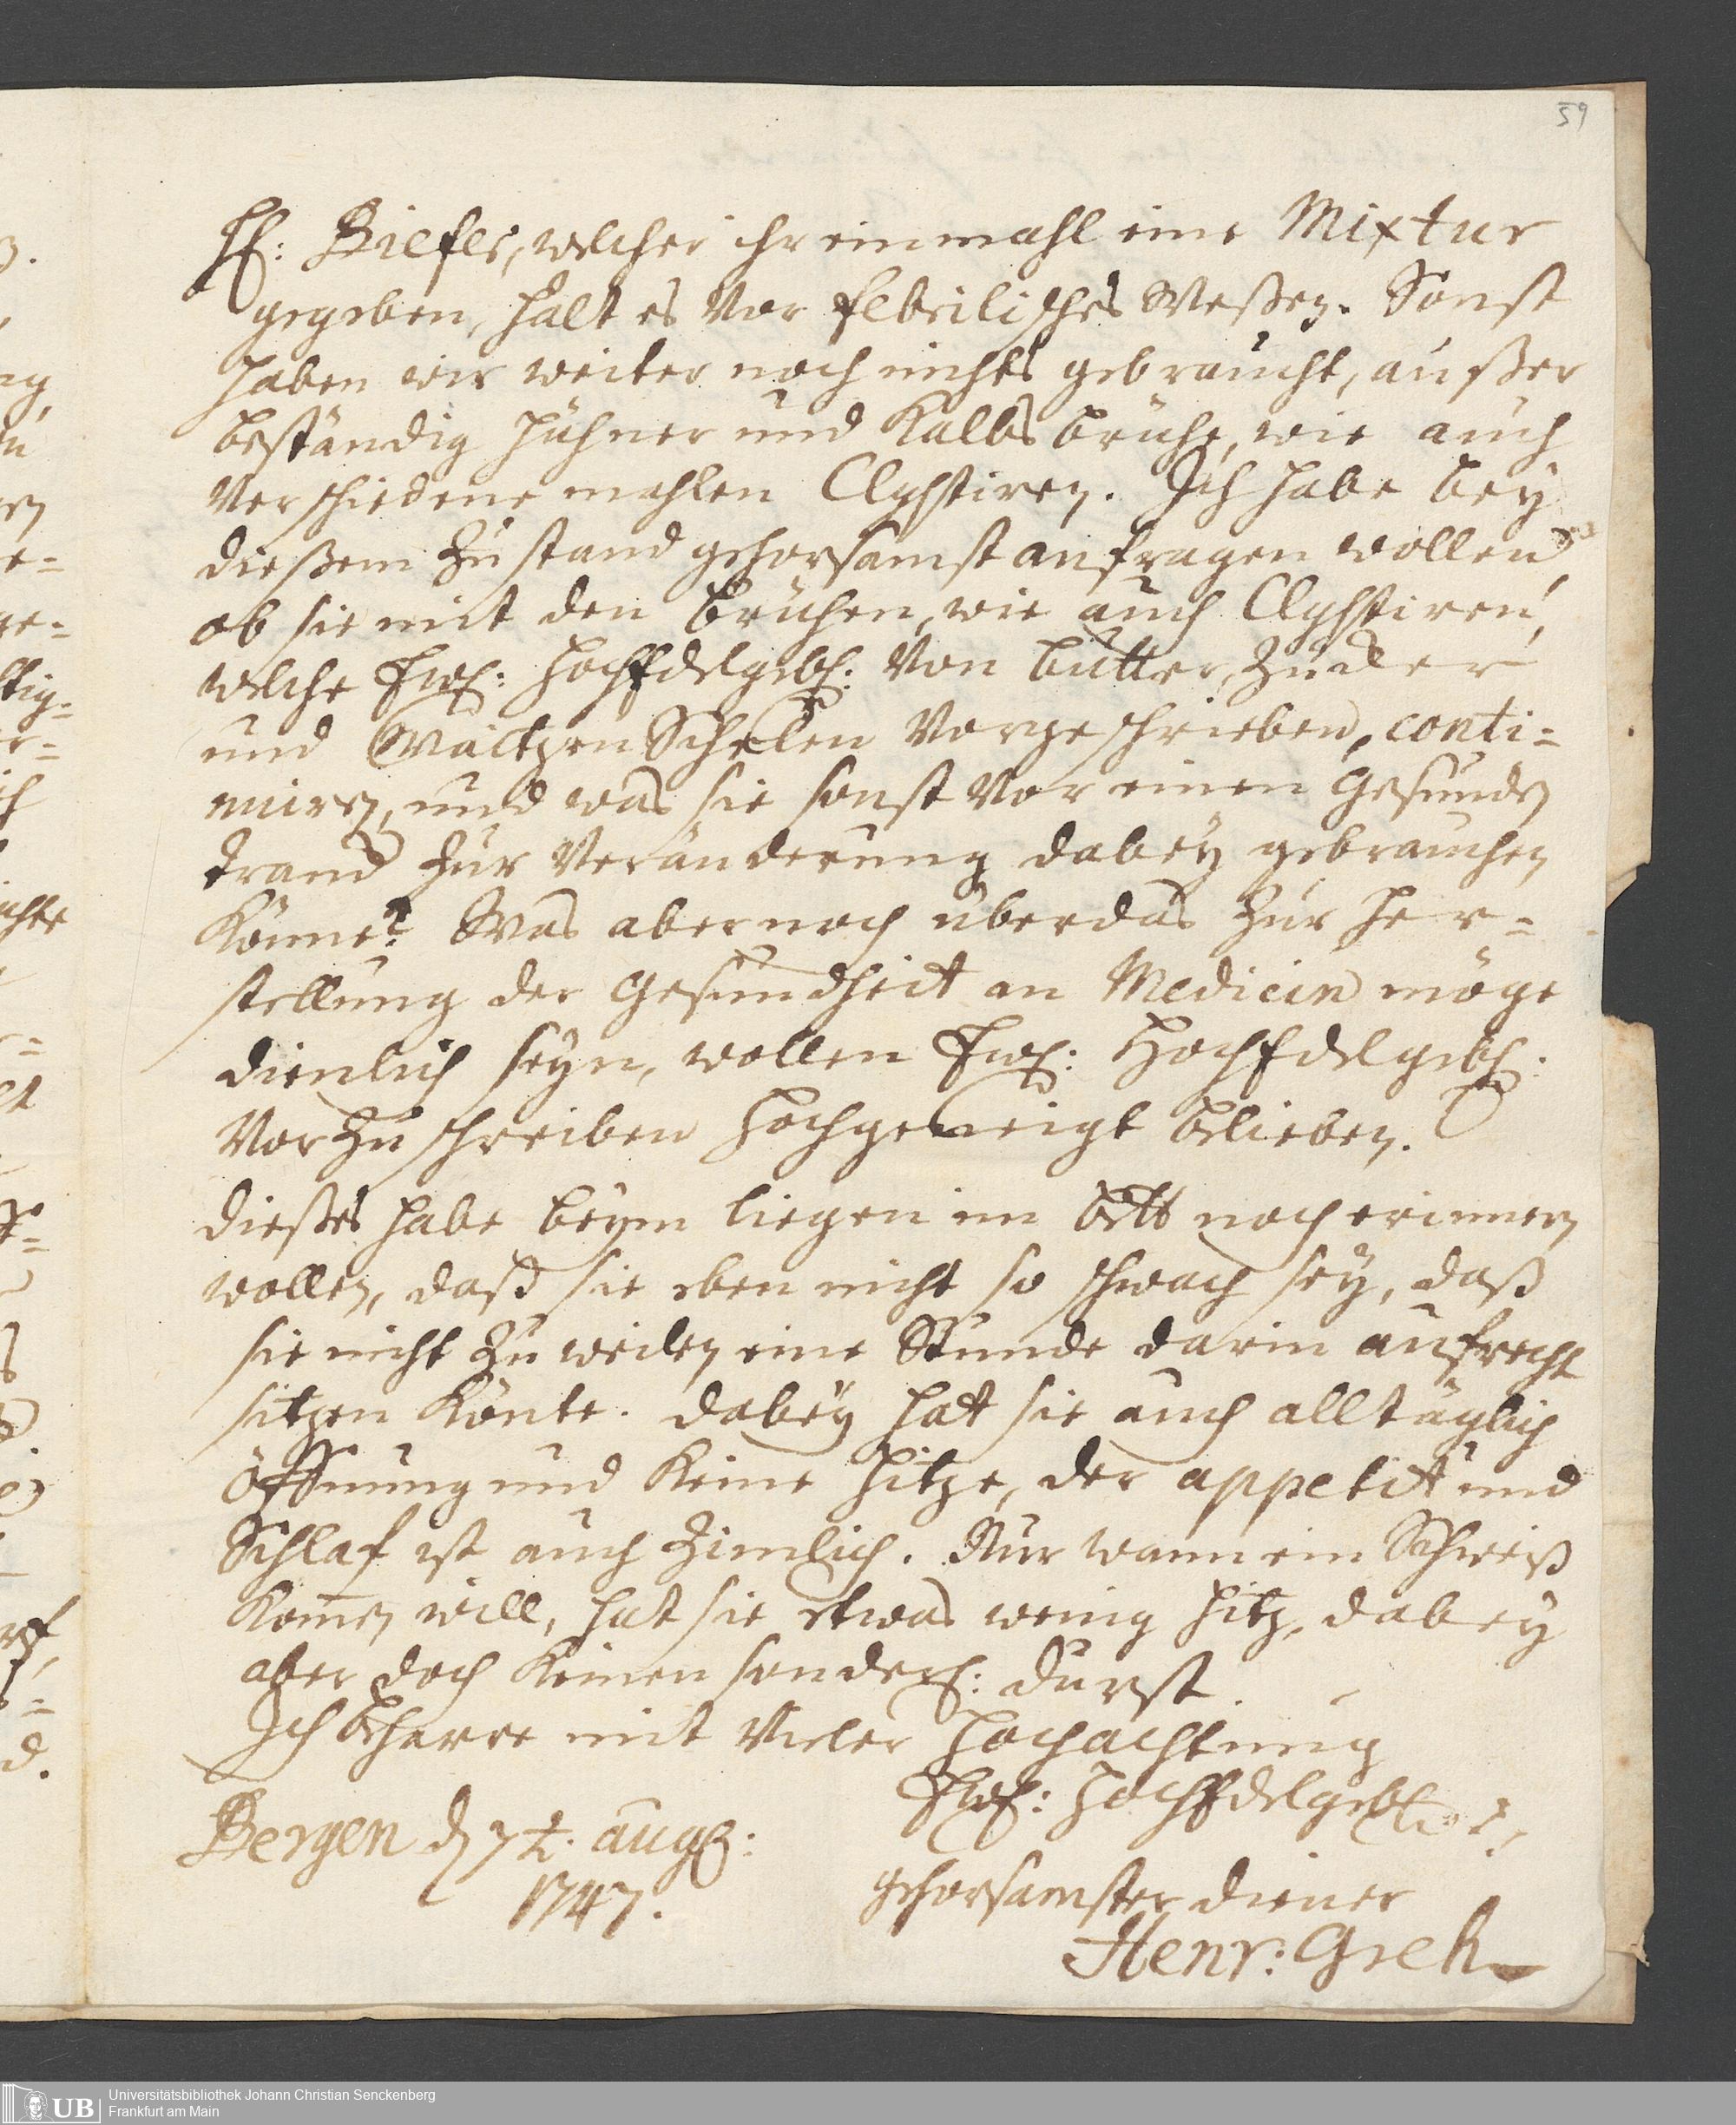 59
H: Biefer, welcher ihr einmahl eine Mixtur
gegeben, hält es vor febrilisches Weßen. Sonst
haben wir weiter noch nichts gebraucht, außer
beständig Hühner und Kalbs brühe, wie auch
verschiedene mahlen Clystiren. Ich habe bey
dießem Zustand gehorsamst anfragen wollen,
ob sie mit den brühen, wie auch Clystiren,
welche Ew: HochEdelgeb: von butter, Zucker
und Waitzen Schelen vorgeschrieben, conti=
nuiren, und was sie sonst vor einen Gesunden
tranck zur Veränderung dabey gebrauchen
Könne? Was aber noch überdas zur Her=
stellung der Gesundheit an Medicin möge
dienlich seyn, wollen Ew: HochEdelgeb:
vorzuschreiben hochgeneigt belieben.
dießes habe beym liegen im bett noch erinnern
wollen, daß sie eben nicht so schwach sey, daß
sie nicht zuweilen eine Stunde darin aufrecht
sitzen Könte. dabey hat sie auch alltäglich
öffnung und Keine Hitze, der appetit und
Schlaf ist auch zimlich. Nur wann ein Schweiß
Komen will, hat sie etwas wenig Hitz, dabey
aber doch Keinen sonderl: durst.
Ich beharre mit vieler Hochachtung
Ew: HochEdelgeb:
Bergen d 7t. aug:
1747.
gehorsamster diener
Henr: Greh
UB
Universitätsbibliothek Johann Christian Senckenberg
Frankfurt am Main